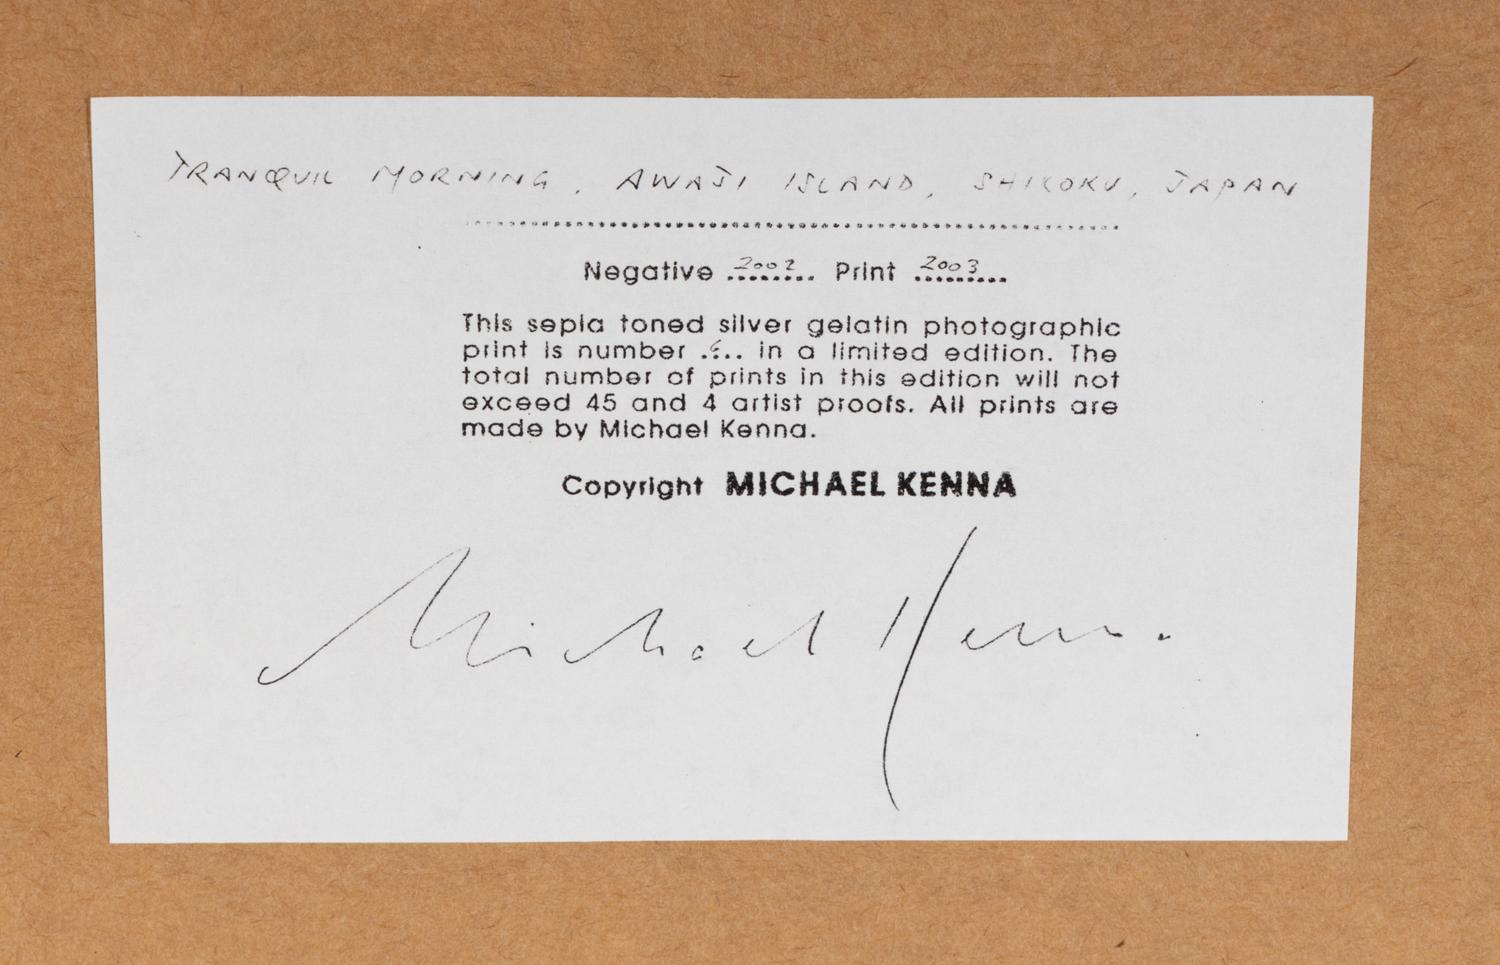 TRANQUIL MORNING, AWAJI ISLAND, SHIKOKU, JAPAN
Negative 2002 Print 2003
This sepia toned silver gelatin photographic
print is number in a limited edition. The
total number of prints in this edition will not
exceed 45 and 4 artist proofs. All prints are
made by Michael Kenna.
Copyright MICHAEL KENNA
Michael Kenna.